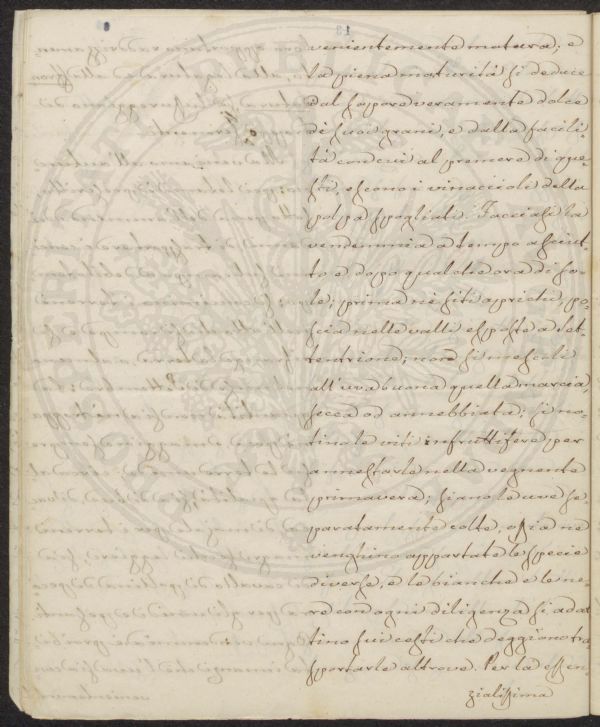 venientemente matura; e
la piena maturità si deduce
dal sapore veramente dolce
di suoi grani, e dalla facili-
tà con cui al premere di que-
sti, escono i vinaccioli della
polpa spogliati. Facciasi la
vendemmia a tempo asciut-
to e dopo qualche ora di so-
le; prima ne siti aprichi, po-
scia nelle valli esposte a set-
tentrione; non si mescoli
all'uva buona quella marcia,
secca od annebbiata; si no-
tino le viti infruttifere per
annestarle nella vegnente
primavera; siano le uve se-
paratamente colte, ossia ne
venghino appartate le specie
diverse, e le bianche e le ne-
re con ogni diligenza si adat-
tino sui cesti che deggiono tra-
sportarle altrove. Per la essen-
zialissima